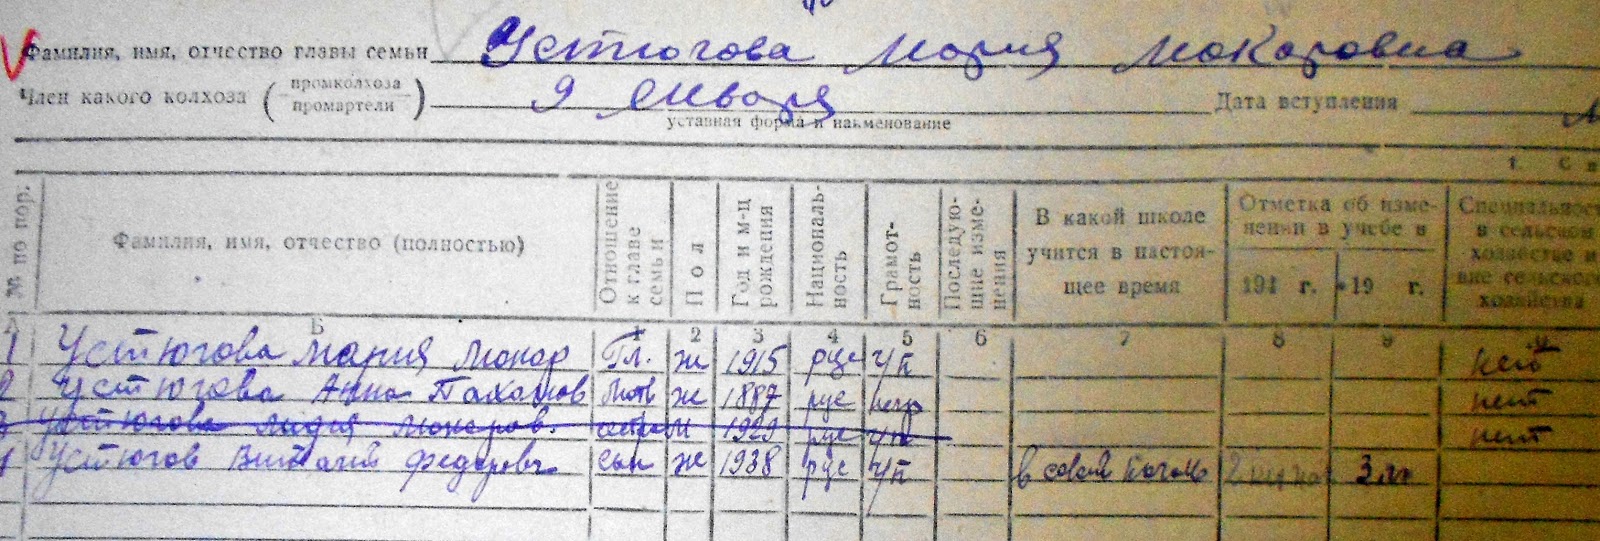 Фамилия, имя, отчество главы семьи Устюгова Мария Макаровна
Член какого колхоза (промколхоза промартели) 9 Января Дата вступления
уставная форма и наименование
№ по пор. Фамилия, имя, отчество (полностью) Отношение к главе семьи Пол Год и м-ц рождения Националь- ность Грамот- ность Последую- щие изме- нения В какой школе учится в настоя- щее время Отметка об изме- нении в учебе в 194 г. 19 г. Специальность в сельском хозяйстве и вне сельского хозяйства
А Б 1 2 3 4 5 6 7 8 9
1 Устюгова Мария Макар Гл. ж 1915 рус ч/п нет
2 Устюгова Анна Пахомов мать ж 1887 рус негр нет
3 Устюгова Лидия Макаров. сестра 1929 рус ч/п нет
4 Устюгов Виталий Федорович сын ж 1938 рус ч/п в 3